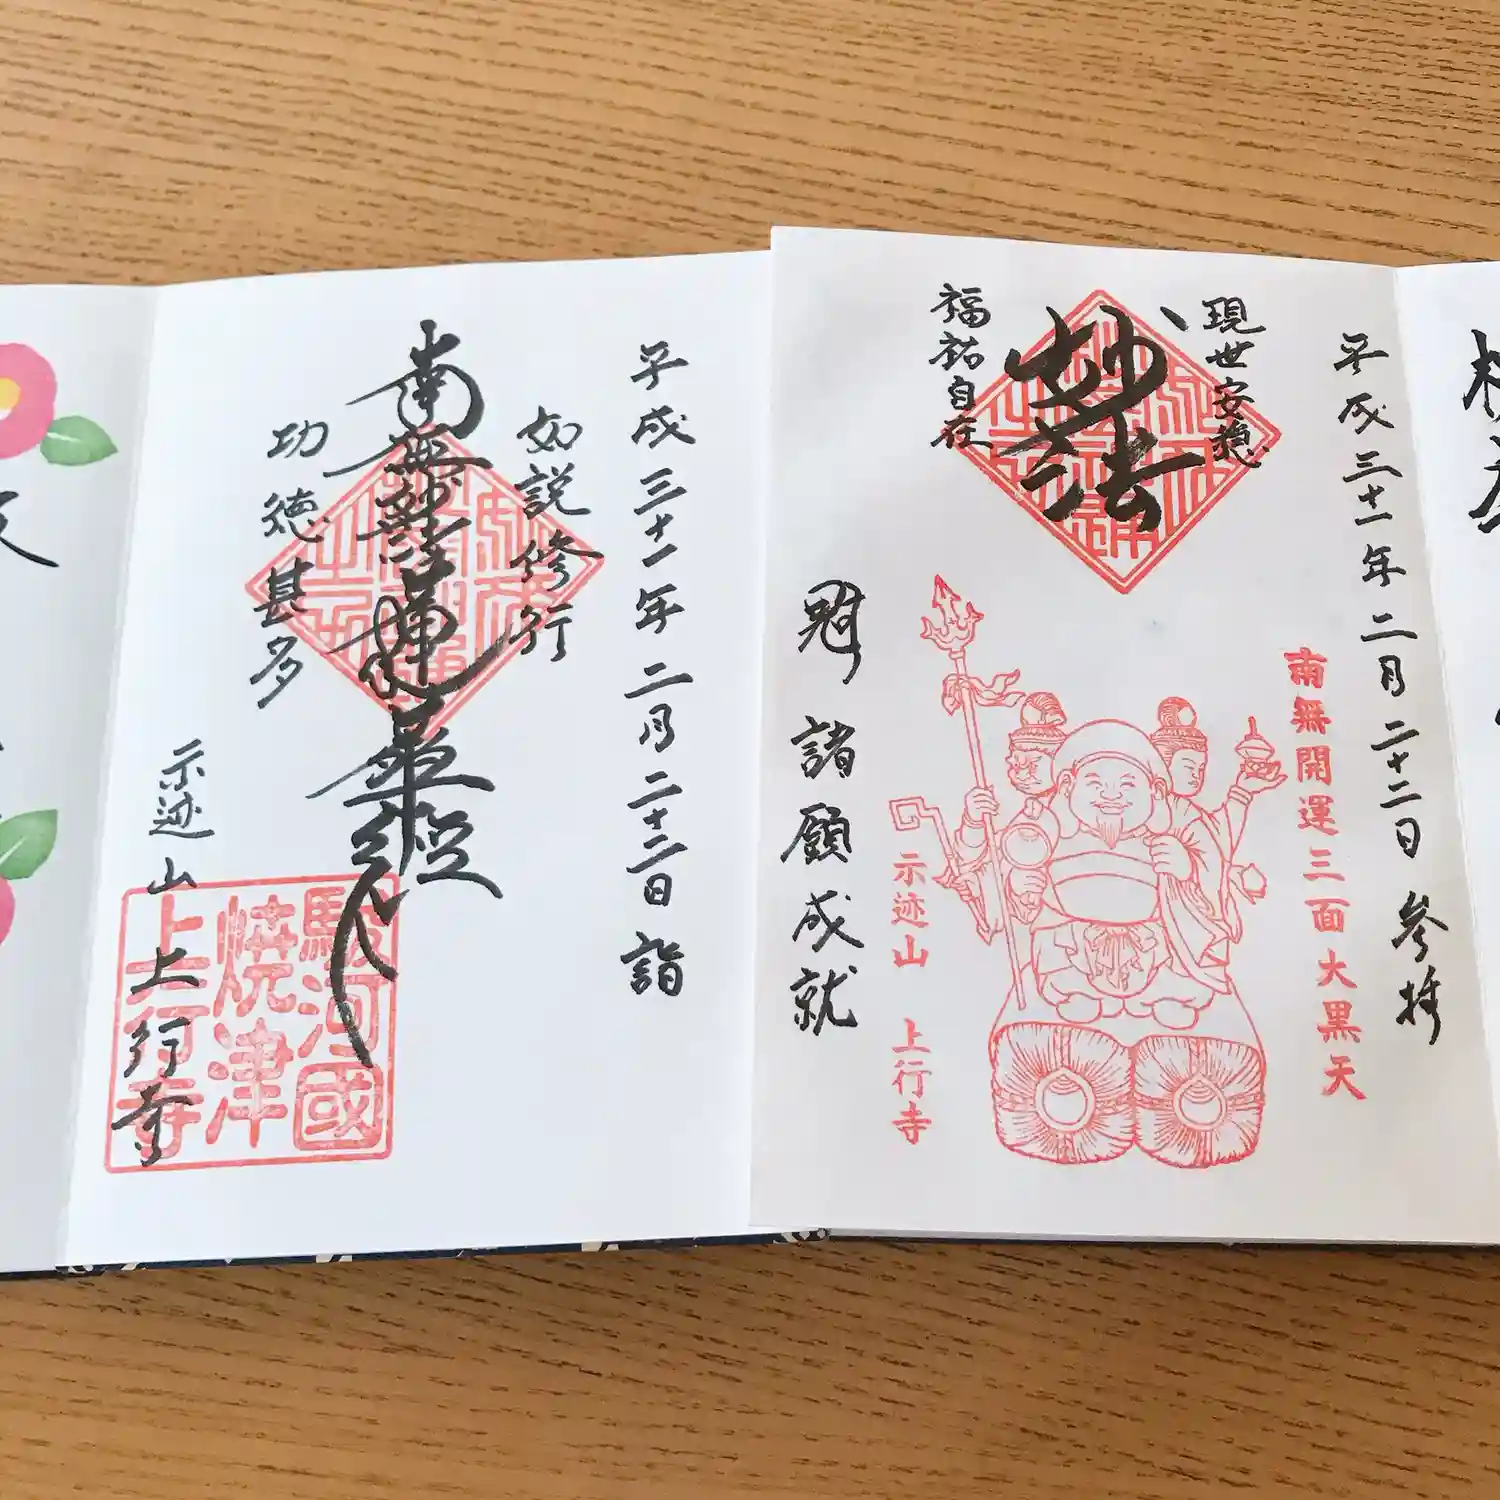 平成三十一年二月二十二日 参拝
現世安穏
妙法
福祐自在
南無開運三面大黒天
示迹山 上行寺
諸願成就
平成三十一年二月二十二日 詣
如説修行
南無妙法蓮華経
功徳甚多
示迹山 上行寺
駿河國
焼津
上行寺